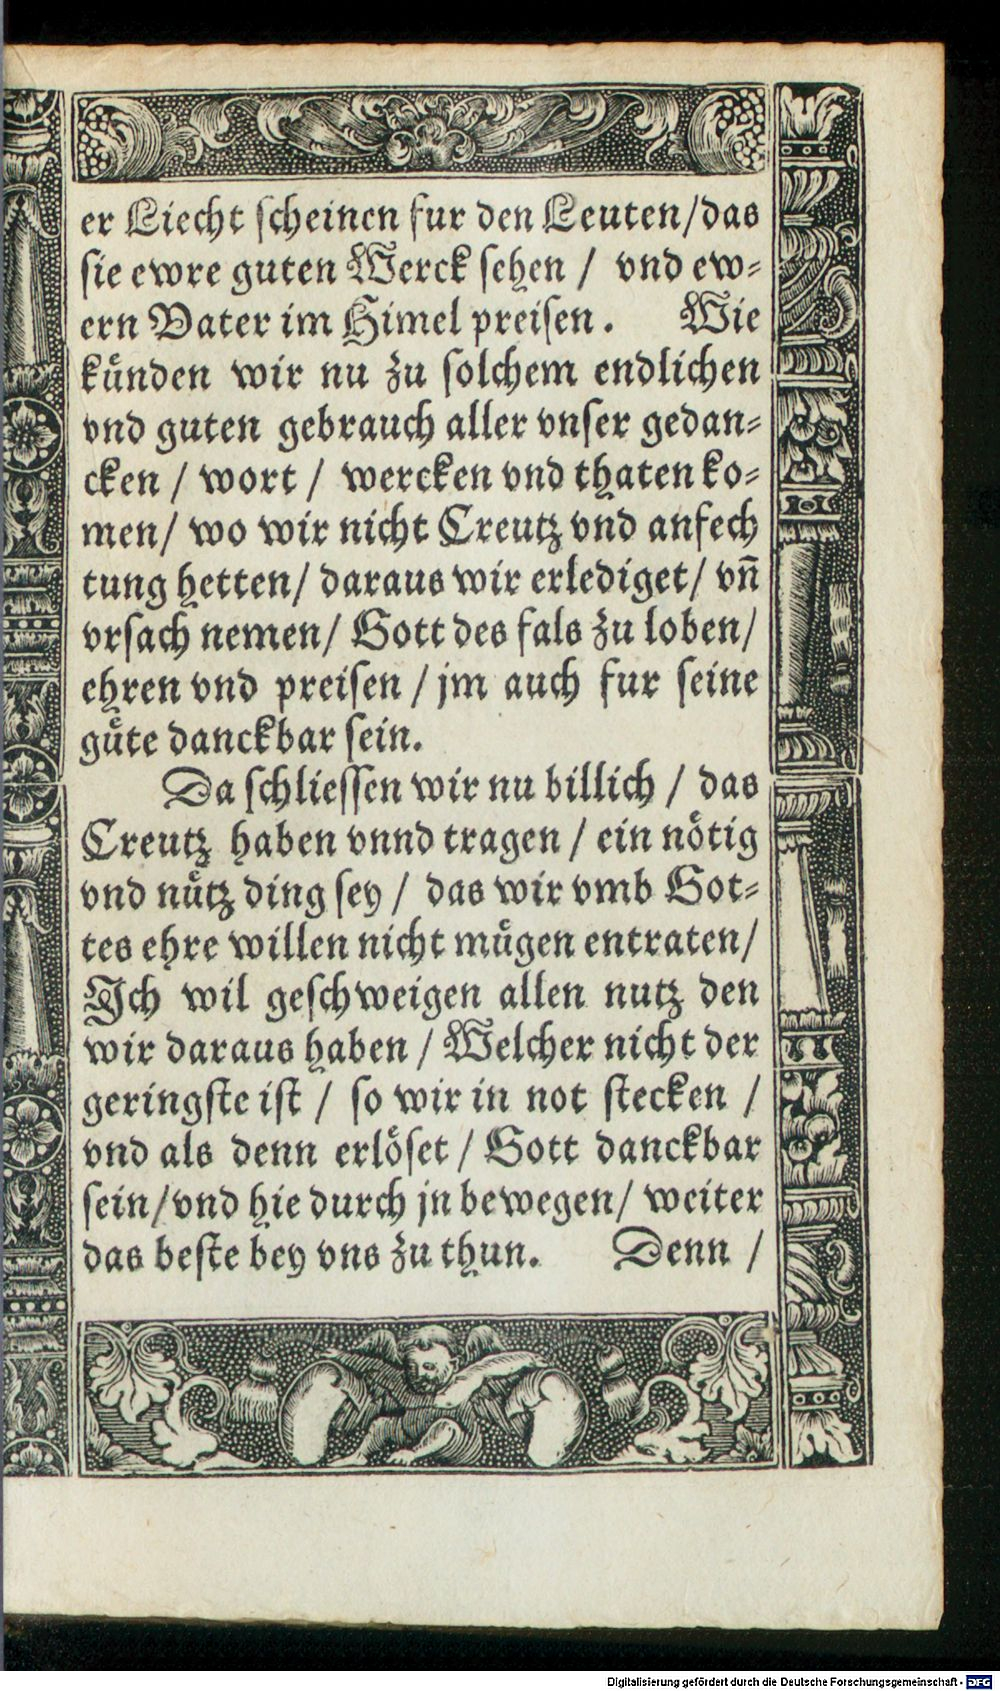 er Liecht scheinen fur den Leuten/das
sie ewre guten Werck sehen / vnd ew-
ern Vater im Himel preisen. Wie
künden wir nu zu solchem endlichen
vnd guten gebrauch aller vnser gedan-
cken / wort / wercken vnd thaten ko-
men/ wo wir nicht Creutz vnd anfech
tung hetten/ daraus wir erlediget/ vn̄
vrsach nemen/ Gott des fals zu loben/
ehren vnd preisen / jm auch fur seine
güte danckbar sein.
Da schliessen wir nu billich / das
Creutz haben vnnd tragen / ein nötig
vnd nütz ding sey / das wir vmb Got-
tes ehre willen nicht mügen entraten/
Ich wil geschweigen allen nutz den
wir daraus haben / Welcher nicht der
geringste ist / so wir in not stecken /
vnd als denn erlöset / Gott danckbar
sein/vnd hie durch jn bewegen/ weiter
das beste bey vns zu thun. Denn /
Digitalisierung gefördert durch die Deutsche Forschungsgemeinschaft - DFG